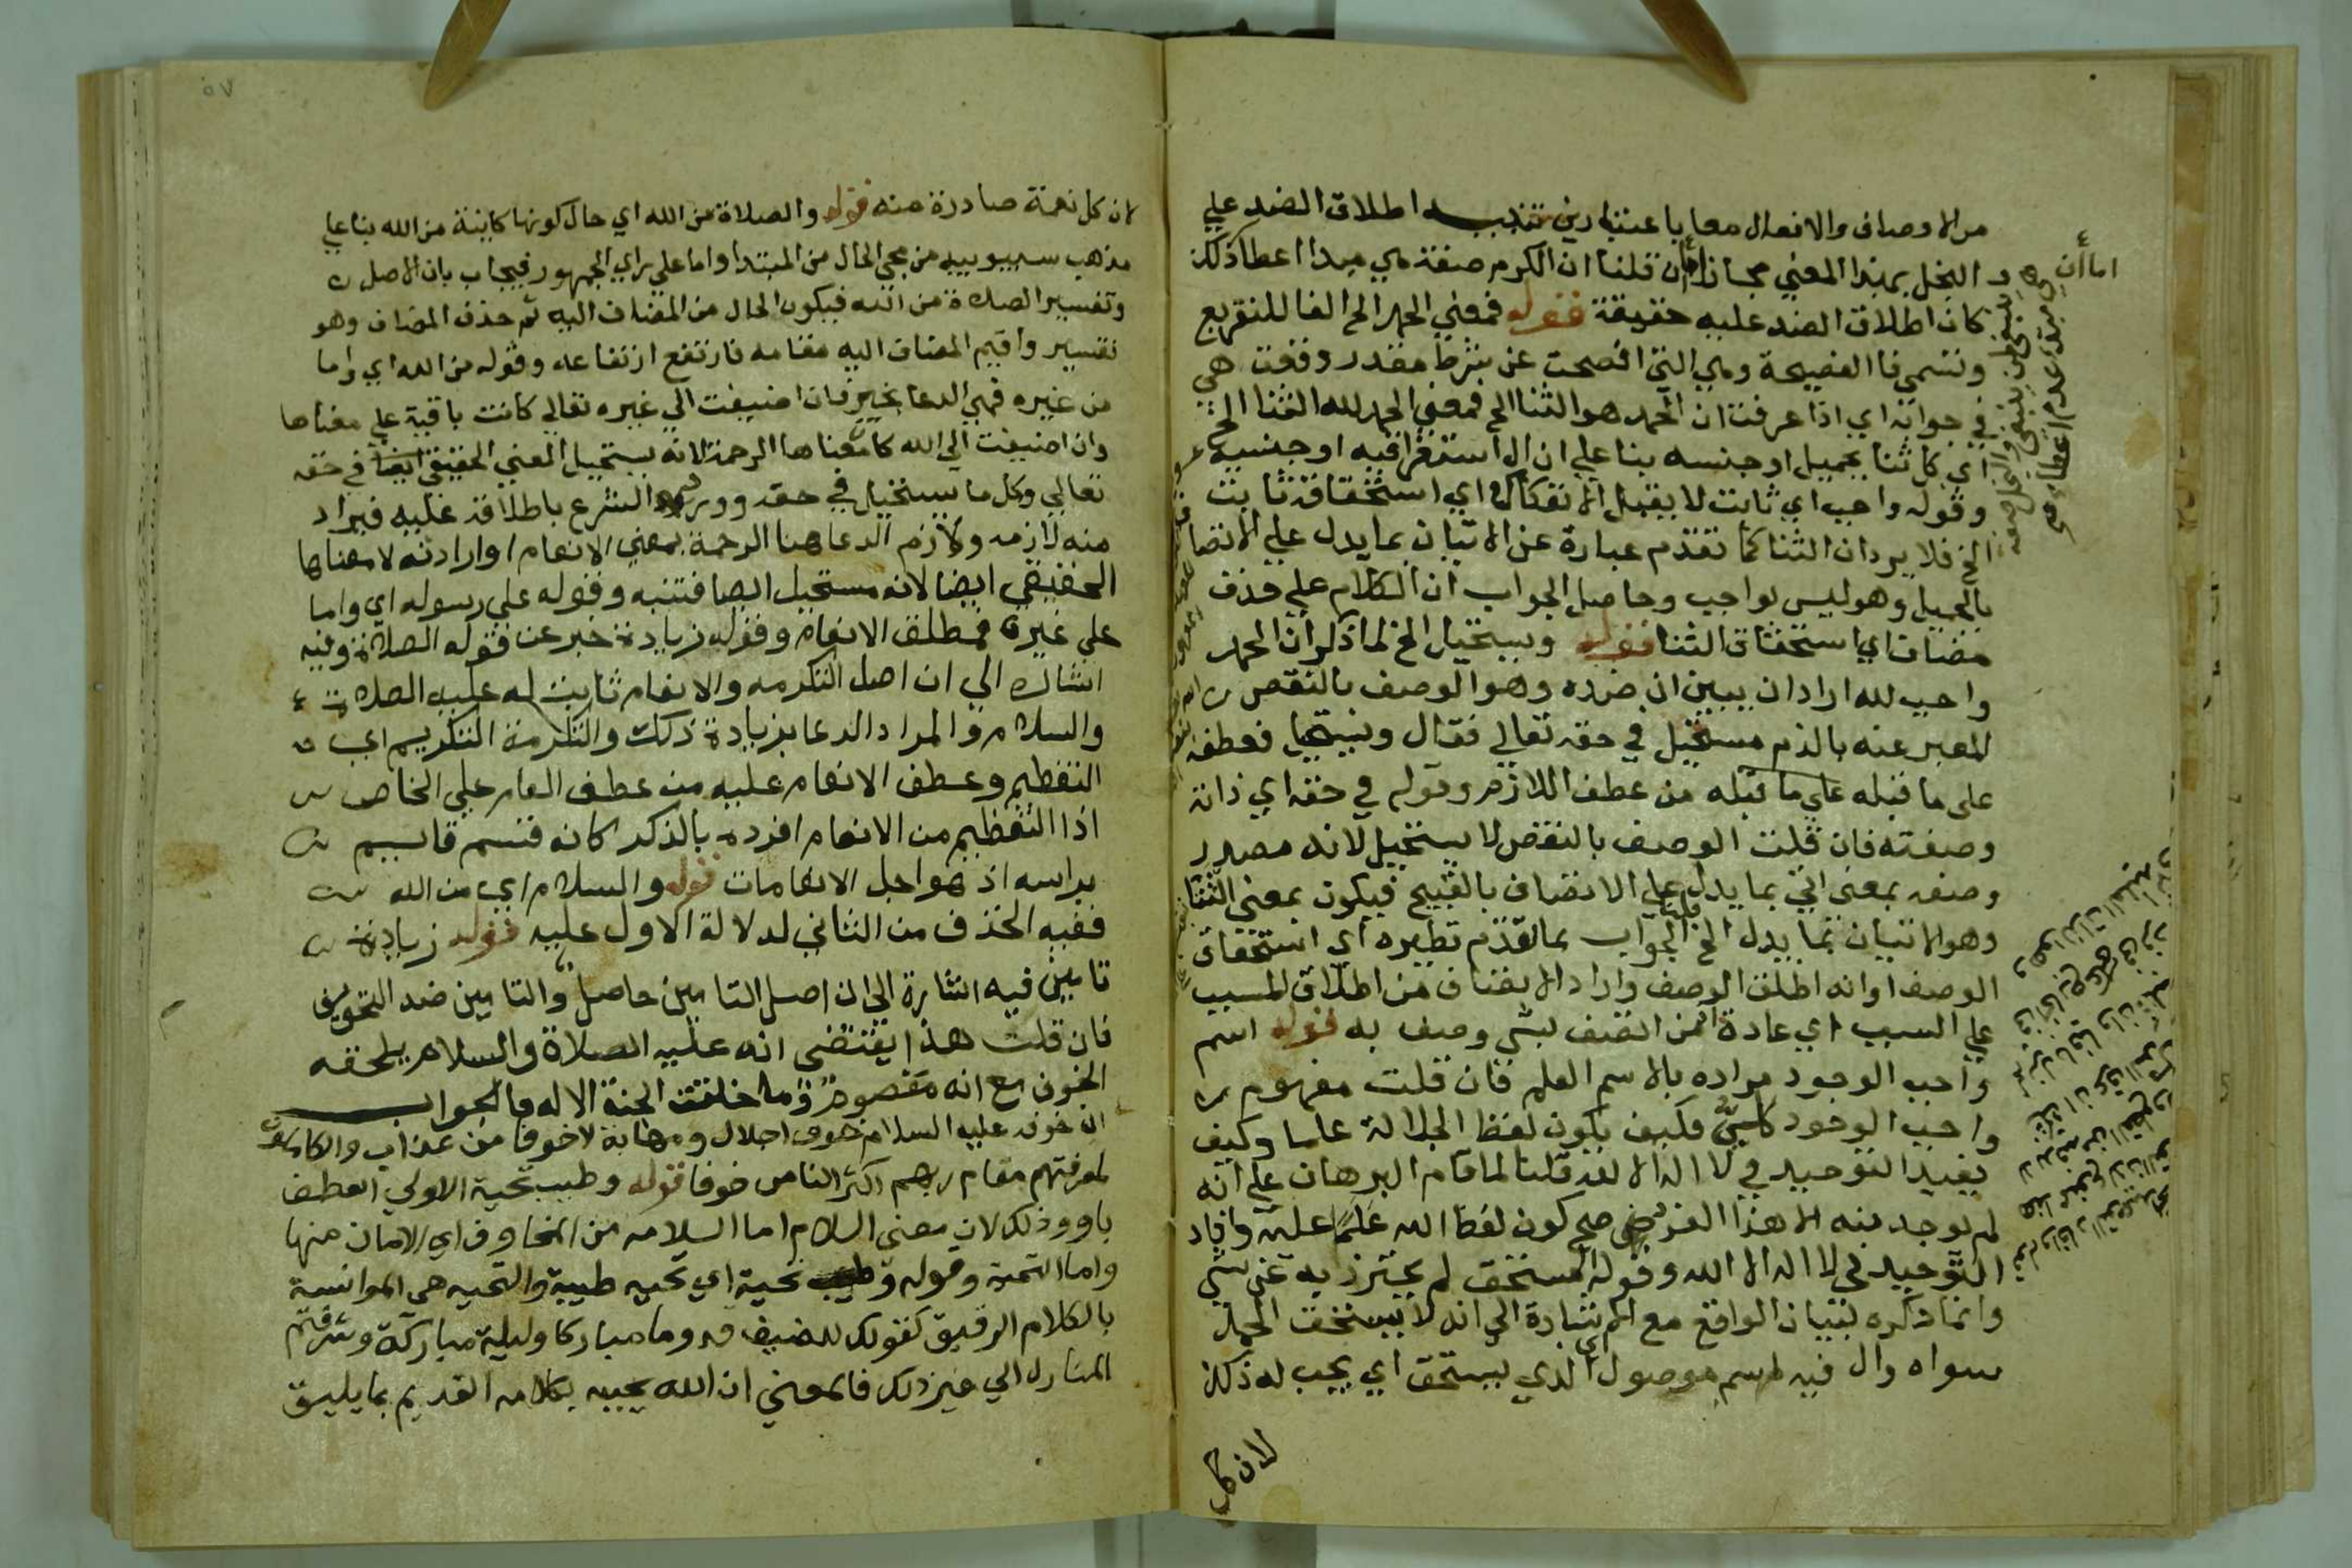 من الاوصاف والافعال معا باعتبارين تنبيه اطلاق الضد علي
البخل بهذا المعني مجاز ان قلنا ان الكرم صفة هي مبدا اعطا ذلك
كان اطلاق الضد عليه حقيقة قوله فمعني الحمد الخ الفا للتفريع
وتسمي فا الفصيحة وهي التي افصحت عن شرط مقدر وقعت هي
في جوابه اي اذا عرفت ان الحمد هو الثنا الخ فمعني الحمد لله الثنا الخ
اي كل ثنا بجميل او جنسه بنا علي ان ال استغراقيه او جنسية
وقوله واجب اي ثابت لا يقبل الانفكاك اي استحقاقه ثابت
الخ فلا يرد ان الثنا كما تقدم عبارة عن الاتيان بما يدل علي الاتصا
بالجميل وهو ليس بواجب وحاصل الجواب ان الكلام علي حذف
مضاف اي استحقاق الثنا قوله ويستحيل الخ لما ذكر ان الحمد
واجب لله اراد ان يبين ان ضده وهو الوصف بالنقص
المعبر عنه بالذم مستحيل في حقه تعالي فقال ويستحيل فعطفه
علي ما قبله من عطف اللازم وقوله في حقه اي ذاته
وصفته فان قلت الوصف بالنقص لا يستحيل لانه مصدر
وصفه بمعني اتي بما يدل علي الاتصاف بالقبيح فيكون بمعني الثنا
وهو الاتيان بما يدل الخ قلت الجواب بما تقدم نظيره اي استحقاق
الوصف او انه اطلق الوصف واراد الاتصاف من اطلاق المسبب
علي السبب اي عادة لان من اتصف بشي وصف به قوله اسم
واجب الوجود مراده بالاسم العلم فان قلت مفهوم
واجب الوجود كلي فكيف يكون لفظ الجلالة علما وكيف
يفيد التوحيد في لا اله الا الله قلنا لما قام البرهان علي انه
لم يوجد منه الا هذا الفرد صح كون لفظ الله علما عليه وافاد
التوحيد في لا اله الا الله وقوله المستحق لم يحترز به عن شي
وانما ذكره لبيان الواقع مع الاشارة الي انه لا يستحق الحمد
سواه وال فيه اسم موصول اي الذي يستحق اي يجب له ذلك
لان كل
اما ان
٥٧
لان كل نعمة صادرة منه قوله والصلاة من الله اي حال كونها كاينة من الله بنا علي
مذهب سيبويه من مجي الحال من المبتدا واما علي راي الجمهور فيجاب بان الاصل
وتفسير الصلاة من الله فيكون الحال من المضاف اليه ثم حذف المضاف وهو
تفسير واقيم المضاف اليه مقامه فارتفع ارتفاعه وقوله من الله اي واما
من غيره فهي الدعا بخير فان اضيفت الي غيره تعالي كانت باقية علي معناها
وان اضيفت الي الله كان معناها الرحمة لانه يستحيل المعني الحقيقي ايضا في حقه
تعالي وكل ما يستحيل في حقه وورد الشرع باطلاقه عليه فيراد
منه لازمه ولازم الدعا هنا الرحمة بمعني الانعام او ارادته لا معناها
الحقيقي ايضا لانه مستحيل ايضا فتنبه وقوله علي رسوله اي واما
علي غيره فمطلق الانعام وقوله زيادة خبر عن قوله الصلاة وفيه
اشارة الي ان اصل التكرمه والانعام ثابت له عليه الصلاة
والسلام والمراد الدعا بزيادة ذلك والتكرمة التكريم اي
التعظيم وعطف الانعام عليه من عطف العام علي الخاص
اذا التعظيم من الانعام افرده بالذكر كانه قسم قاييم
براسه اذ هو اجل الانعامات قوله والسلام اي من الله
ففيه الحذف من الثاني لدلالة الاول عليه قوله زيادة
تامين فيه اشارة الي ان اصل التامين حاصل والتامين ضد التخويف
فان قلت هذا يقتضي انه عليه الصلاة والسلام يلحقه
الخوف مع انه مقصوم وما خلقت الجنة الا له فالجواب
ان خوفه عليه السلام خوف اجلال ومهابة لا خوفا من عذاب والكاملون
لمعرفتهم مقام ربهم اكثر الناس خوفا قوله وطيب تحية الاولي العطف
باو وذلك لان معني السلام اما السلامه من المخاوف اي الامان منها
واما التحية وقوله وطيب تحية اي تحيه طيبة والتحيه هي الموانسة
بالكلام الرقيق كقولك للضيف قدوما مباركا وليلة مباركة وشرفتم
المنازل الي غير ذلك فالمعني ان الله يحييه بكلامه القديم بما يليق